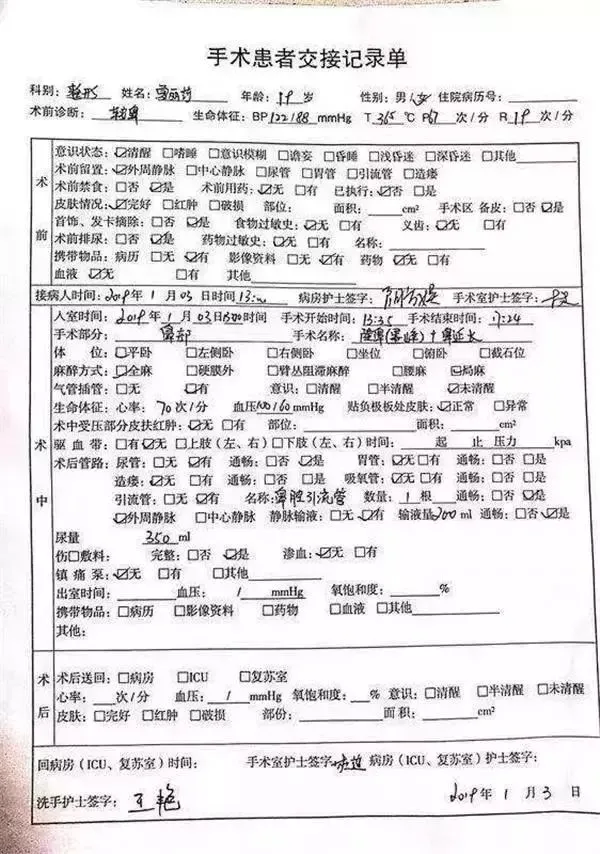 手术患者交接记录单
科别：整形 姓名： 年龄：19岁 性别：男/女 住院病历号：
术前诊断： 生命体征：BP 122/88 mmHg T 36.5 ℃ P 67 次/分 R 19 次/分
术前
意识状态：☑清醒 □嗜睡 □意识模糊 □谵妄 □昏睡 □浅昏迷 □深昏迷 □其他
术前留置：☑外周静脉 □中心静脉 □尿管 □胃管 □引流管 □造瘘
术前禁食：□否 ☑是 术前用药：☑无 □有 已执行：☑否 □是
皮肤情况：☑完好 □红肿 □破损 部位： 面积： cm² 手术区 备皮：□否 ☑是
首饰、发卡摘除：□否 ☑是 食物过敏史：☑无 □有 义齿：☑无 □有
术前排尿：□否 ☑是 药物过敏史：☑无 □有 名称：
携带物品：病历 □无 ☑有 影像资料 □无 ☑有 药物 ☑无 □有
血液 ☑无 □有 其他
接病人时间：2019年1月03日时间13: 病房护士签字： 手术室护士签字：
术中
入室时间：2019年1月03日1300时间 手术开始时间：13:35 手术结束时间：17:24
手术部分：鼻部 手术名称：隆鼻()+鼻延长
体位：☑平卧 □左侧卧 □右侧卧 □坐位 □俯卧 □截石位
麻醉方式：☑全麻 □硬膜外 □臂丛阻滞麻醉 □腰麻 ☑局麻
气管插管：□无 ☑有 意识：□清醒 □半清醒 ☑未清醒
生命体征：心率：70次/分 血压100/60mmHg 贴负极板处皮肤：☑正常 □异常
术中受压部分皮扶红肿：☑无 □有 部位： 面积： cm²
驱血带：□有☑无 □上肢（左、右）□下肢（左、右）时间： 起 止 压力 kpa
术后管路：尿管：□无 ☑有 通畅：□否 ☑是 胃管：☑无□有 通畅：□否 □是
造瘘：☑无 □有 通畅：□否 □是 吸氧管：☑无□有 通畅：□否 □是
引流管：□无 ☑有 名称：鼻腔引流管 数量：1根 通畅：□否 ☑是
☑外周静脉 □中心静脉 静脉输液：□无 ☑有 输液量 ml 通畅：□否 ☑是
尿量 350 ml
伤□敷料： 完整：□否 ☑是 渗血：☑无 □有
镇痛泵：☑无 □有 □其他
出室时间： 血压： / mmHg 氧饱和度： %
携带物品：□病历 □影像资料 □药物 □血液 □其他
其他：
术后
术后送回：□病房 □ICU □复苏室
心率： 次/分 血压： / mmHg 氧饱和度： % 意识：□清醒 □半清醒 □未清醒
皮肤：□完好 □红肿 □破损 部份： 面积： cm²
回病房（ICU、复苏室）时间： 手术室护士签字： 病房（ICU、复苏室）护士签字：
洗手护士签字：王艳 2019年1月3日